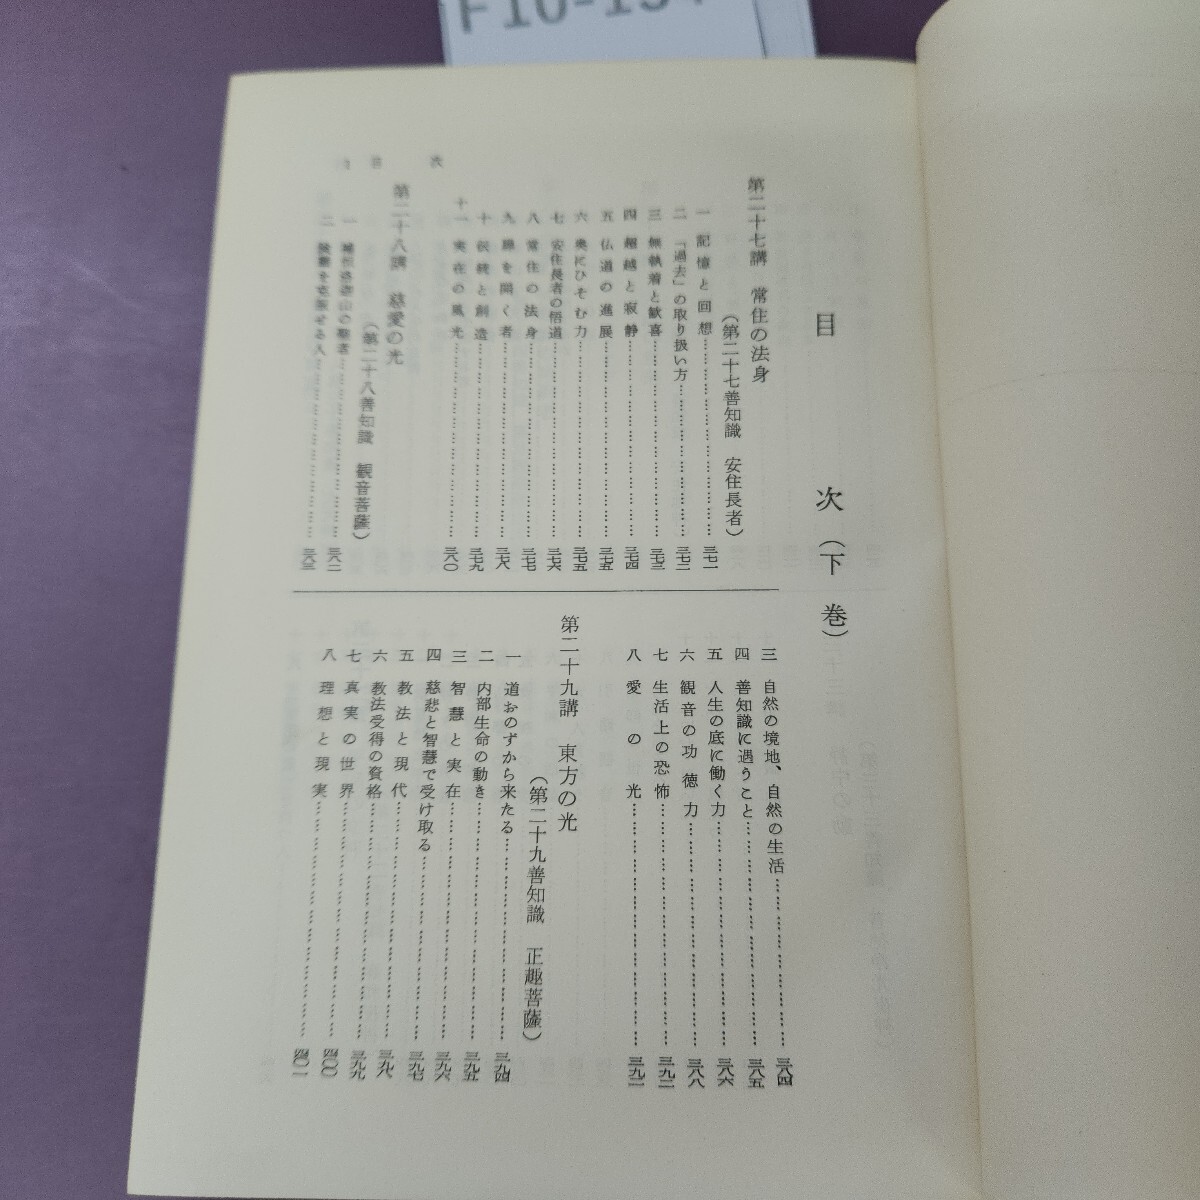 目次（下巻）
第二十七講　常住の法身
（第二十七善知識　安住長者）
一　記憶と回想……三七一
二　「過去」の取り扱い方……三七二
三　無執着と歓喜……三七三
四　超越と寂静……三七四
五　仏道の進展……三七五
六　奥にひそむ力……三七五
七　安住長者の悟道……三七六
八　常住の法身……三七七
九　扉を開く者……三七八
十　伝統と創造……三七九
十一　実在の風光……三八〇
第二十八講　慈愛の光
（第二十八善知識　観音菩薩）
一　補怛洛迦山の聖者……三八二
二　険難を克服せる人……三八三
三　自然の境地、自然の生活……三八四
四　善知識に遇うこと……三八五
五　人生の底に働く力……三八六
六　観音の功徳力……三八八
七　生活上の恐怖……三九二
八　愛の光……三九二
第二十九講　東方の光
（第二十九善知識　正趣菩薩）
一　道おのずから来たる……三九四
二　内部生命の動き……三九五
三　智慧と実在……三九六
四　慈悲と智慧で受け取る……三九七
五　教法と現代……三九八
六　教法受得の資格……三九九
七　真実の世界……四〇〇
八　理想と現実……四〇一
目次